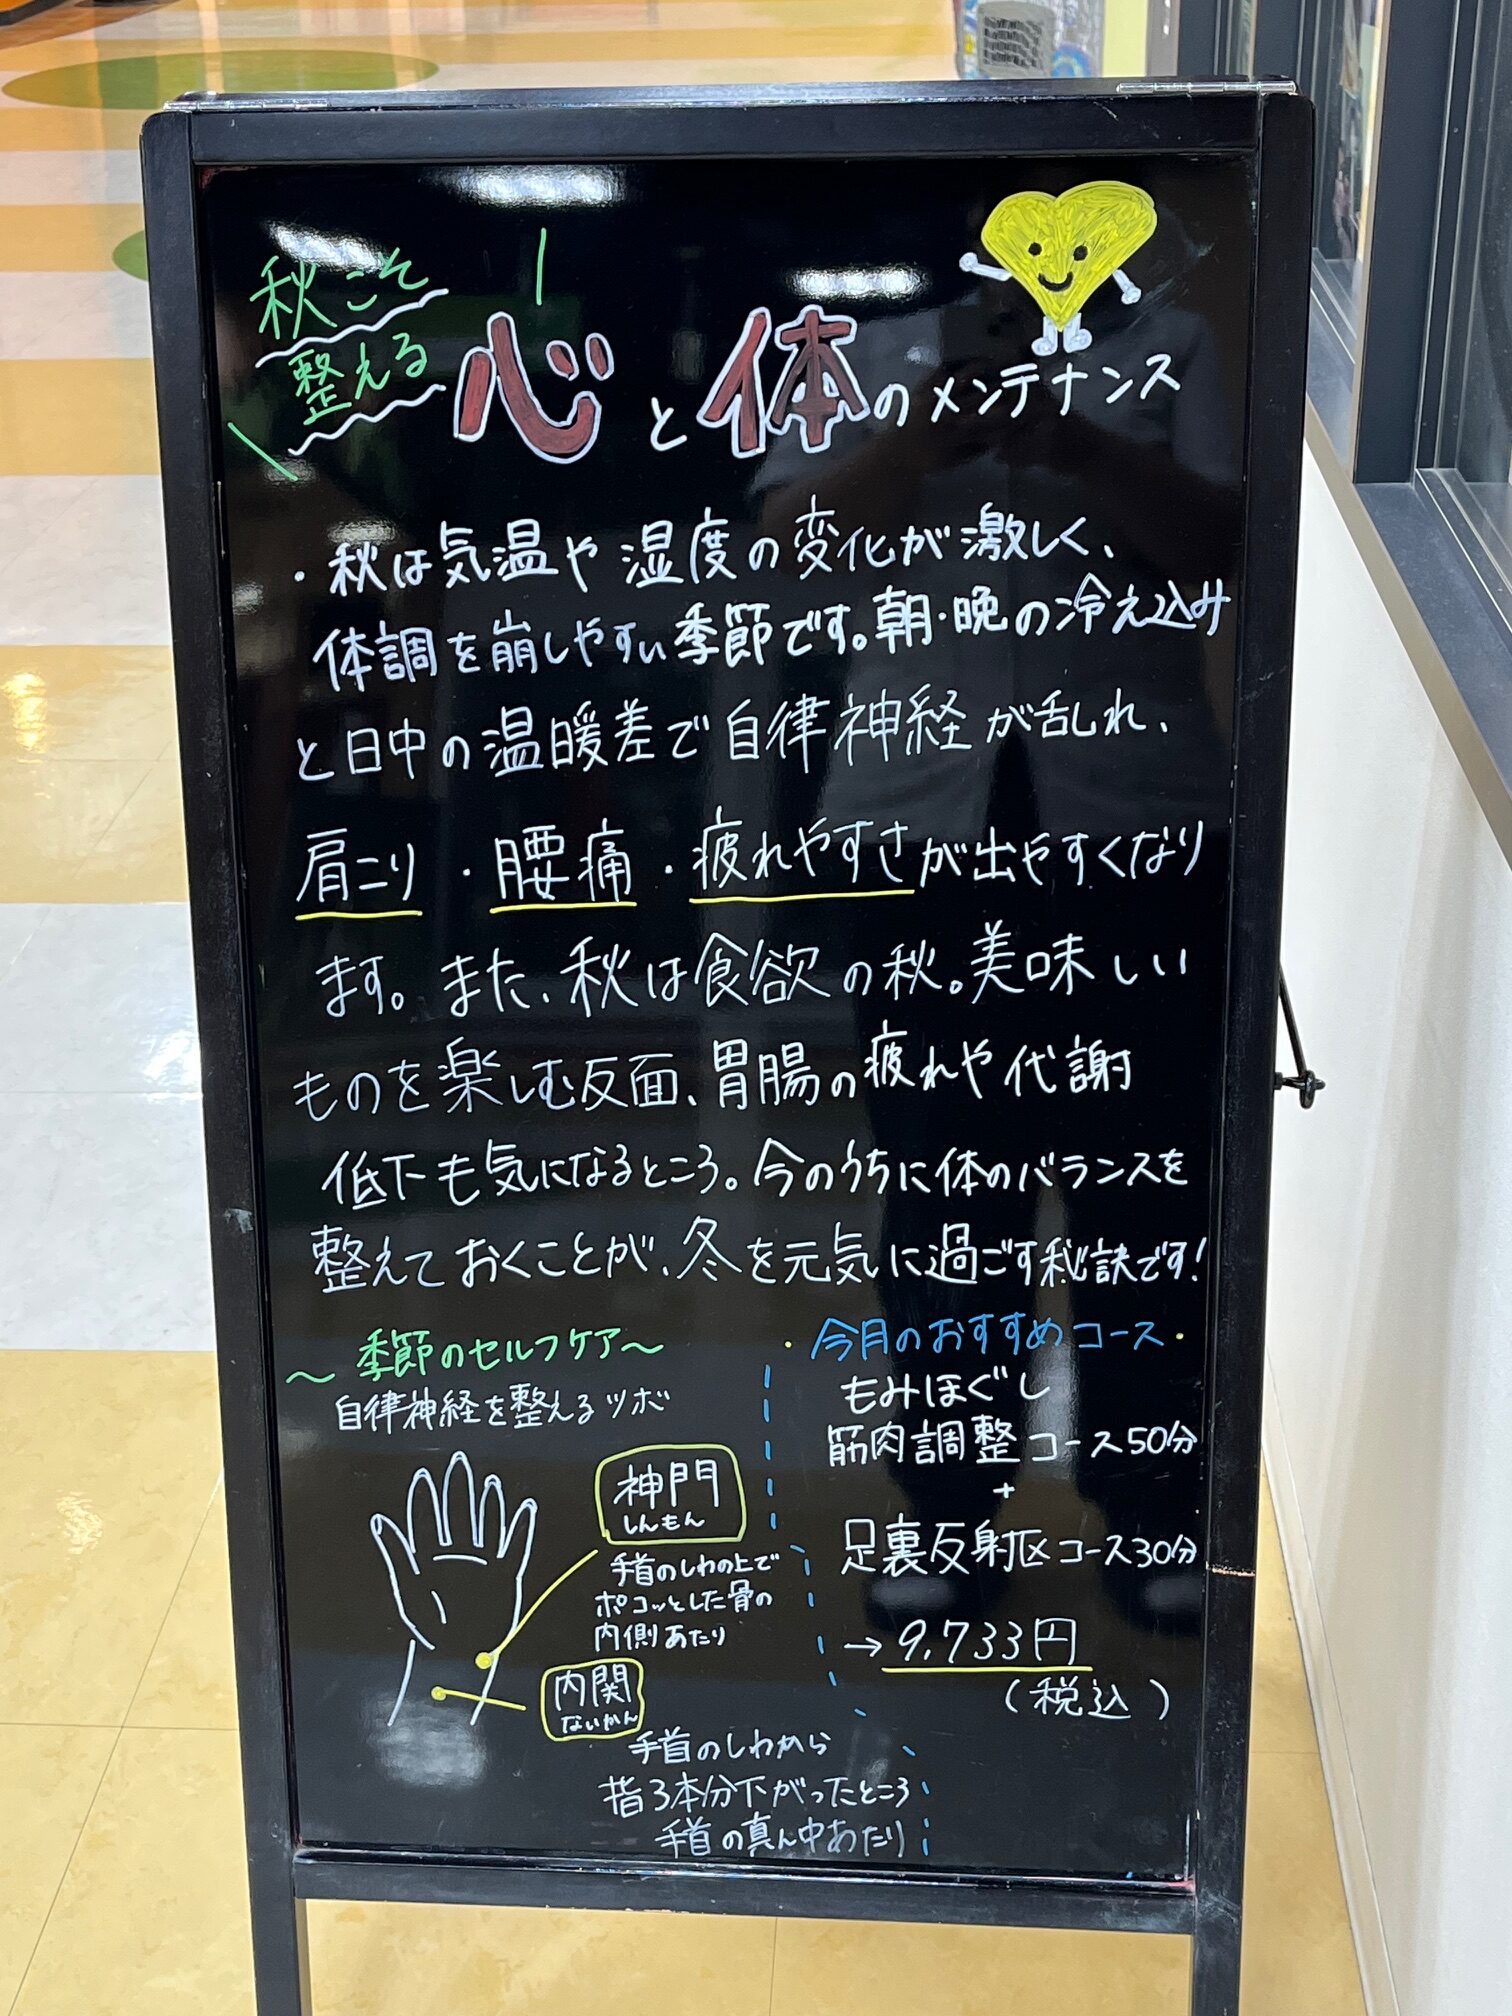 秋こそ
整える
心と体のメンテナンス
・秋は気温や湿度の変化が激しく、
体調を崩しやすい季節です。朝・晩の冷え込み
と日中の温暖差で自律神経が乱れ、
肩こり・腰痛・疲れやすさが出やすくなり
ます。また、秋は食欲の秋。美味しい
ものを楽しむ反面、胃腸の疲れや代謝
低下も気になるところ。今のうちに体のバランスを
整えておくことが、冬を元気に過ごす秘訣です!
〜季節のセルフケア〜
自律神経を整えるツボ
神門
しんもん
手首のしわの上で
ポコッとした骨の
内側あたり
内関
ないかん
手首のしわから
指3本分下がったところ
手首の真ん中あたり
・今月のおすすめコース・
もみほぐし
筋肉調整コース50分
+
足裏反射区コース30分
→9.733円
(税込)